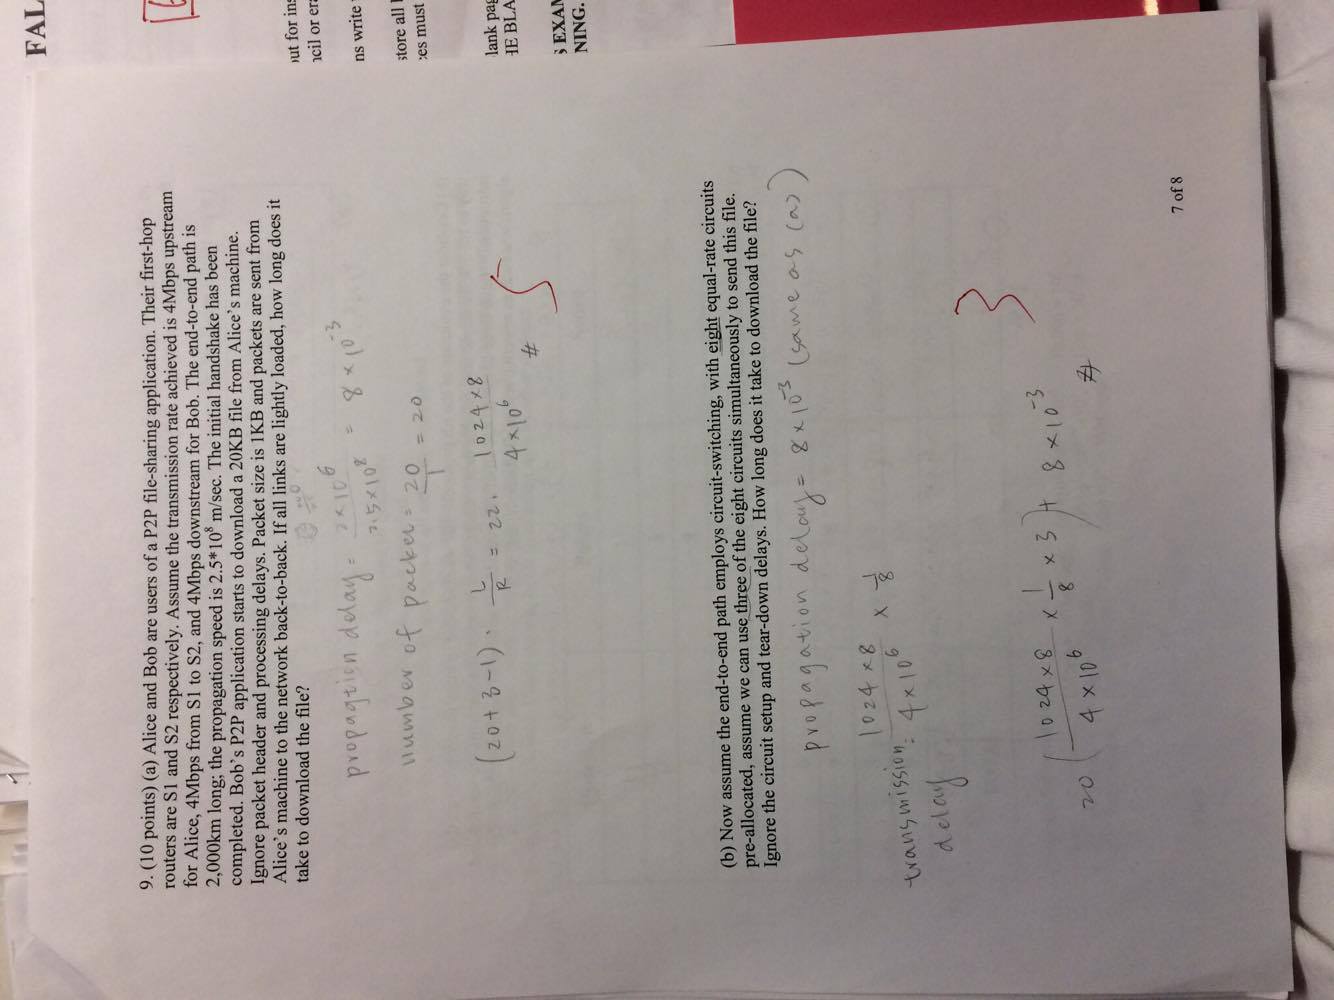 FAL
out for ins
ncil or era
ns write
store all
ces must
lank pag
HE BLA
S EXAM
NING.
9. (10 points) (a) Alice and Bob are users of a P2P file-sharing application. Their first-hop
routers are S1 and S2 respectively. Assume the transmission rate achieved is 4Mbps upstream
for Alice, 4Mbps from S1 to S2, and 4Mbps downstream for Bob. The end-to-end path is
2,000km long; the propagation speed is 2.5*10⁸ m/sec. The initial handshake has been
completed. Bob's P2P application starts to download a 20KB file from Alice's machine.
Ignore packet header and processing delays. Packet size is 1KB and packets are sent from
Alice's machine to the network back-to-back. If all links are lightly loaded, how long does it
take to download the file?
propagtion delay = 2×10⁶ / 2.5×10⁸ = 8×10⁻³
number of packet = 20/1 = 20
(20+3-1) · L/R = 22 · 1024×8 / 4×10⁶ #
5
(b) Now assume the end-to-end path employs circuit-switching, with eight equal-rate circuits
pre-allocated, assume we can use three of the eight circuits simultaneously to send this file.
Ignore the circuit setup and tear-down delays. How long does it take to download the file?
propagation delay = 8×10⁻³ (same as (a))
transmission = 1024×8 / 4×10⁶ × 1/8
delay
3
20 (1024×8 / 4×10⁶ × 1/8 × 3) + 8×10⁻³ #
7 of 8